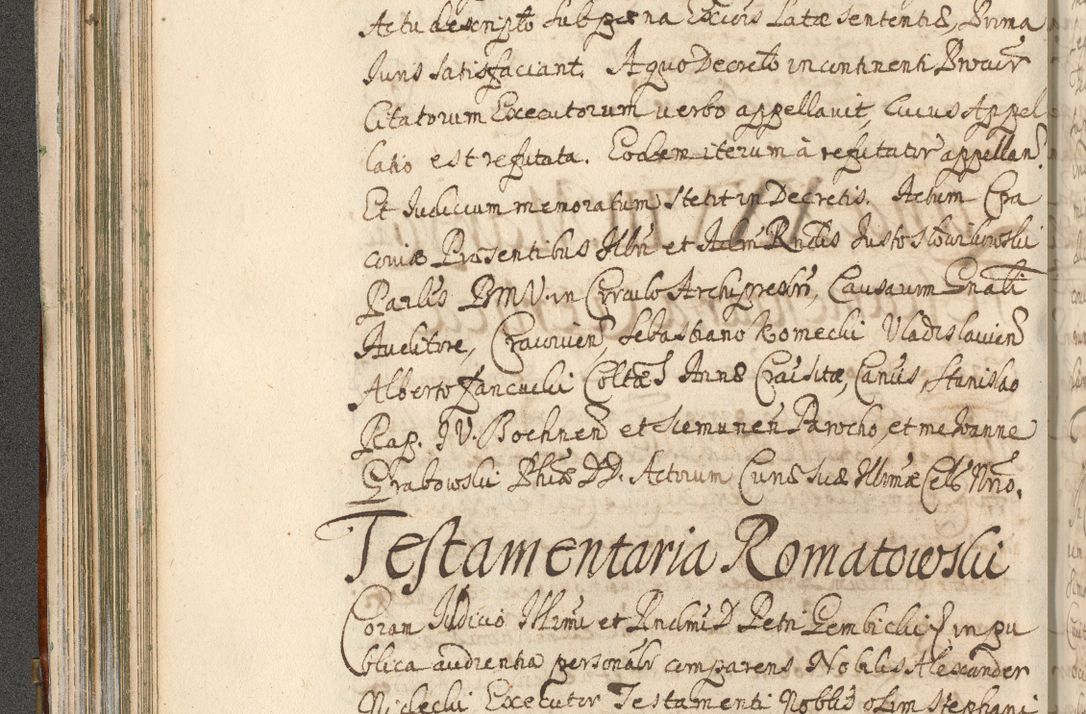 Actu descripto sub poena Excõis Latæ sententiæ, Prima
Juris satisfaciant. A quo Decreto in continenti Procurr
Citatorum Executorum verbo appellavit, cuius Appel
latio est refutata. Eodem iterum à refutatõr appellan̄
Et Judicium memoratum stetit in Decretis. Actum Cra
coviæ Præsentibus Illri et Adm Rndis Justo Słowikowski
BMV. in Circulo Archipresbro, Causarum Gnāli
Auditore, Cracovien̄, Sebastiano Komecki Vladislavien̄
Alberto Jancucki Colltæ S Annæ Crac̄ Canĉis, Stanislao
Rap. IV. Bochnen̄ et Parocho, et me Joanne
Grabowski Phiæ DD. Actorum Curiæ Suæ Illrmæ Cels Nrio.
Testamentaria Romatowski
Coram Judicio Illrmi et Rndmi D Petri Gembicki & in pu
blica audientia personalr comparens Nobilis Alexander
Executor Testamenti Noblis olim Stephani